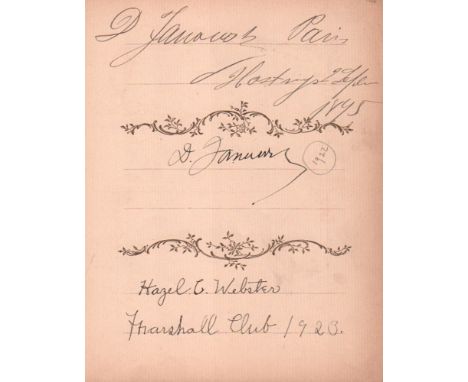 D Janowski Paris
Hastings 2 Sept
1895
D. Janowski
1922
Hazel T. Webster
Marshall Club 1923.